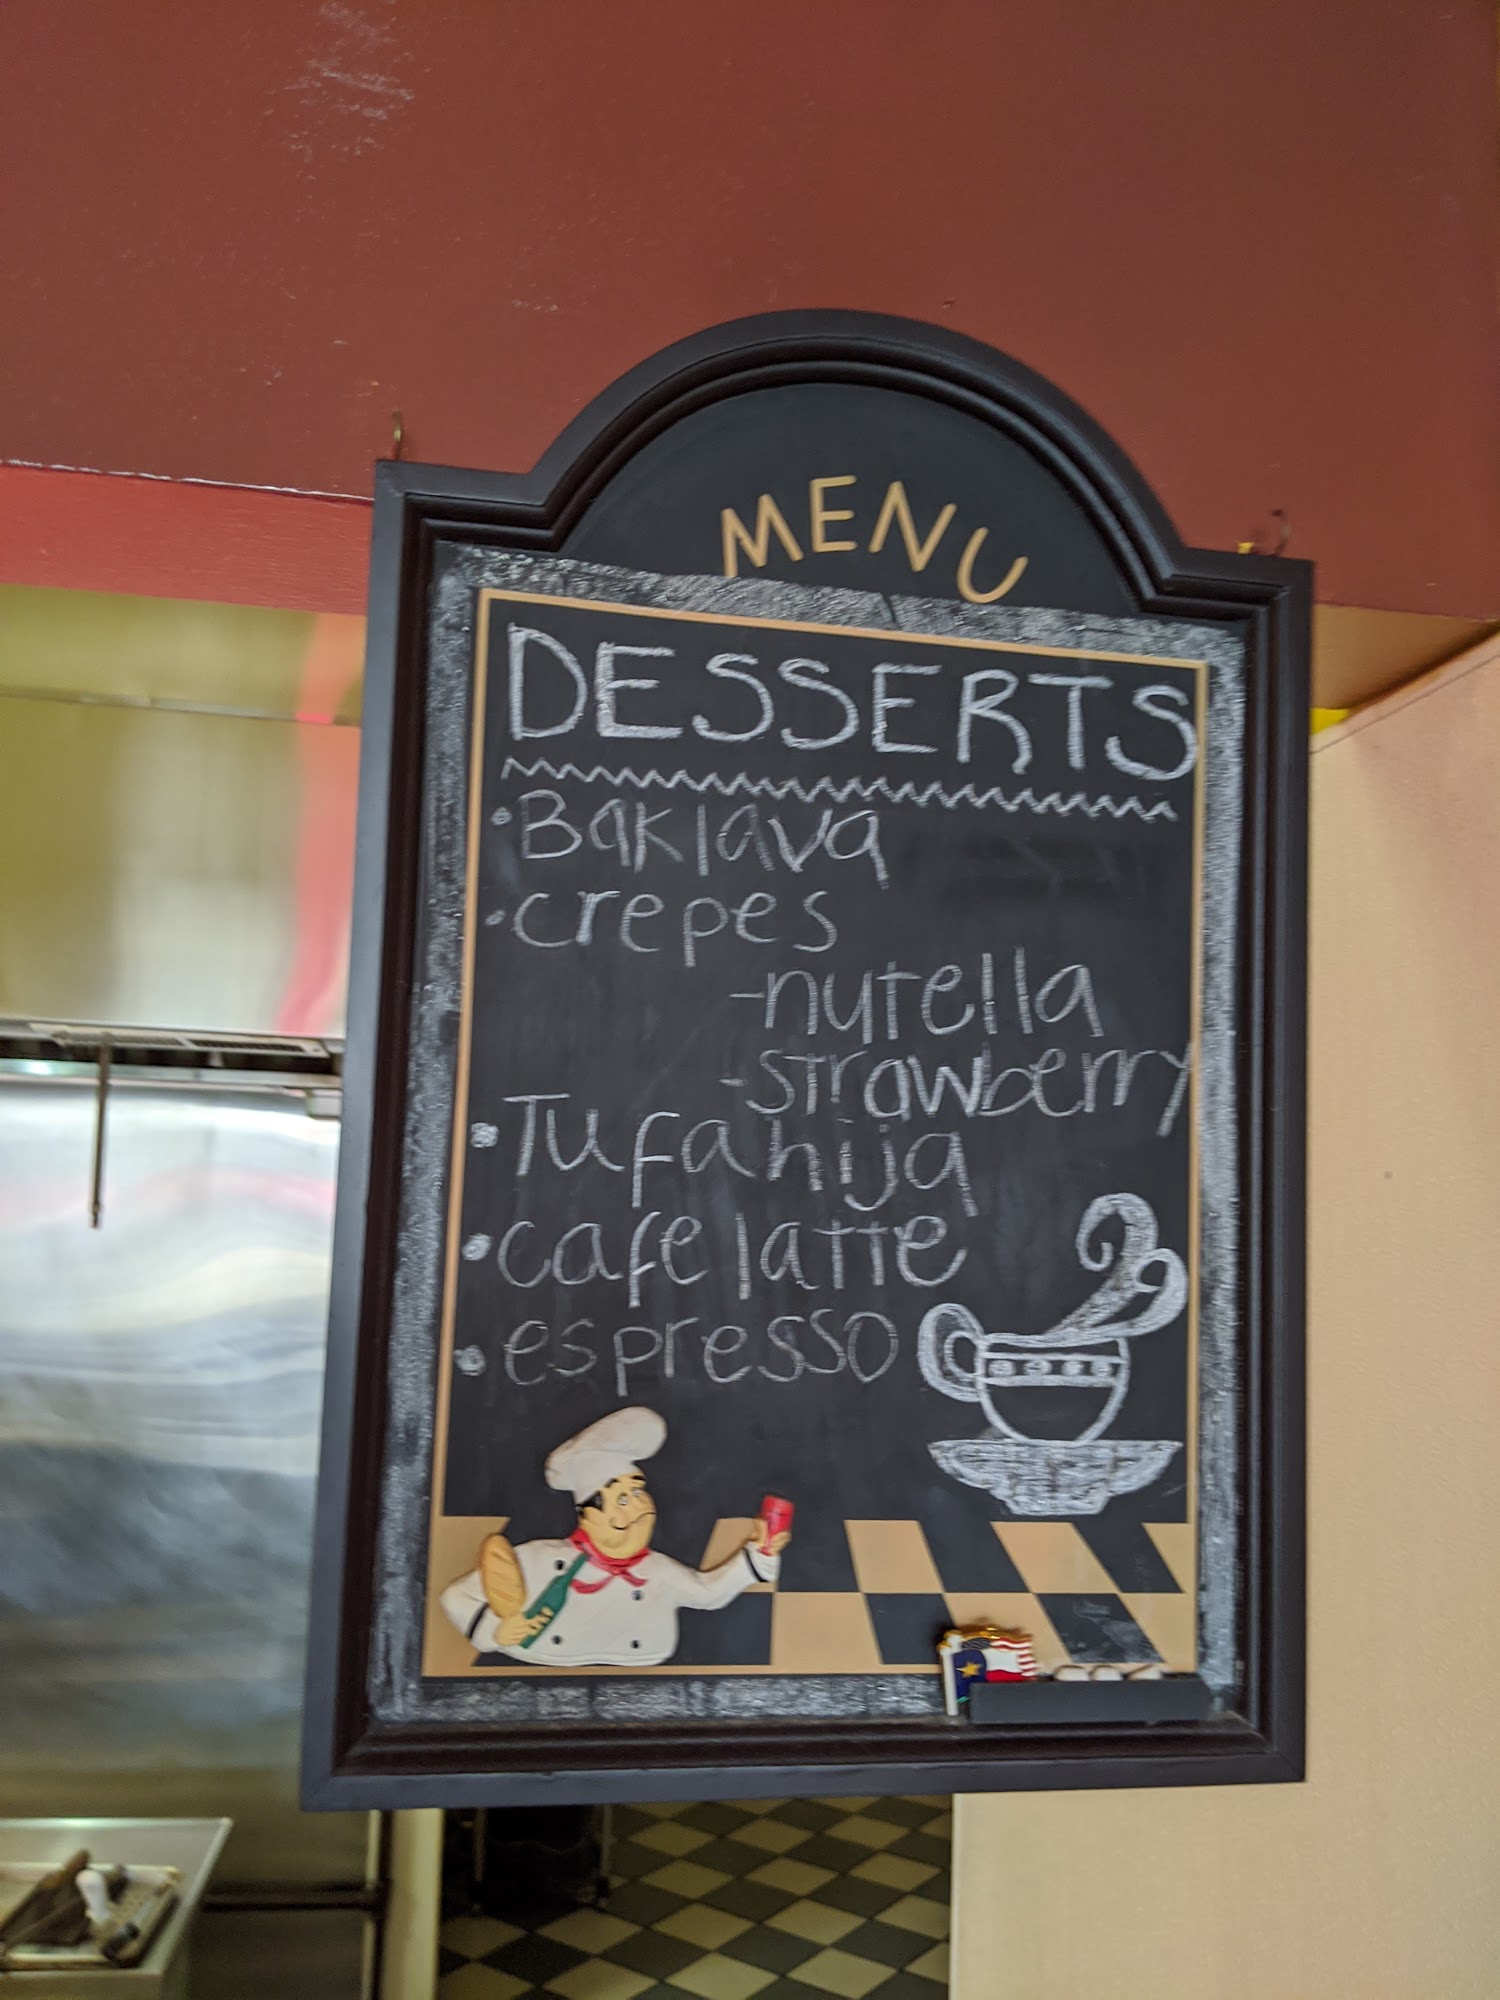 MENU
DESSERTS
• Baklava
• crepes
-nutella
-strawberry
• Tufahija
• cafe latte
• espresso